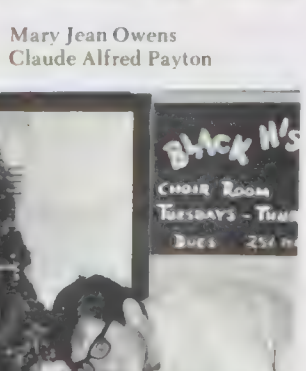 Mary Jean Owens
Claude Alfred Payton
BLACK HIS
CHOIR ROOM
TUESDAYS - THU
DUES 25¢